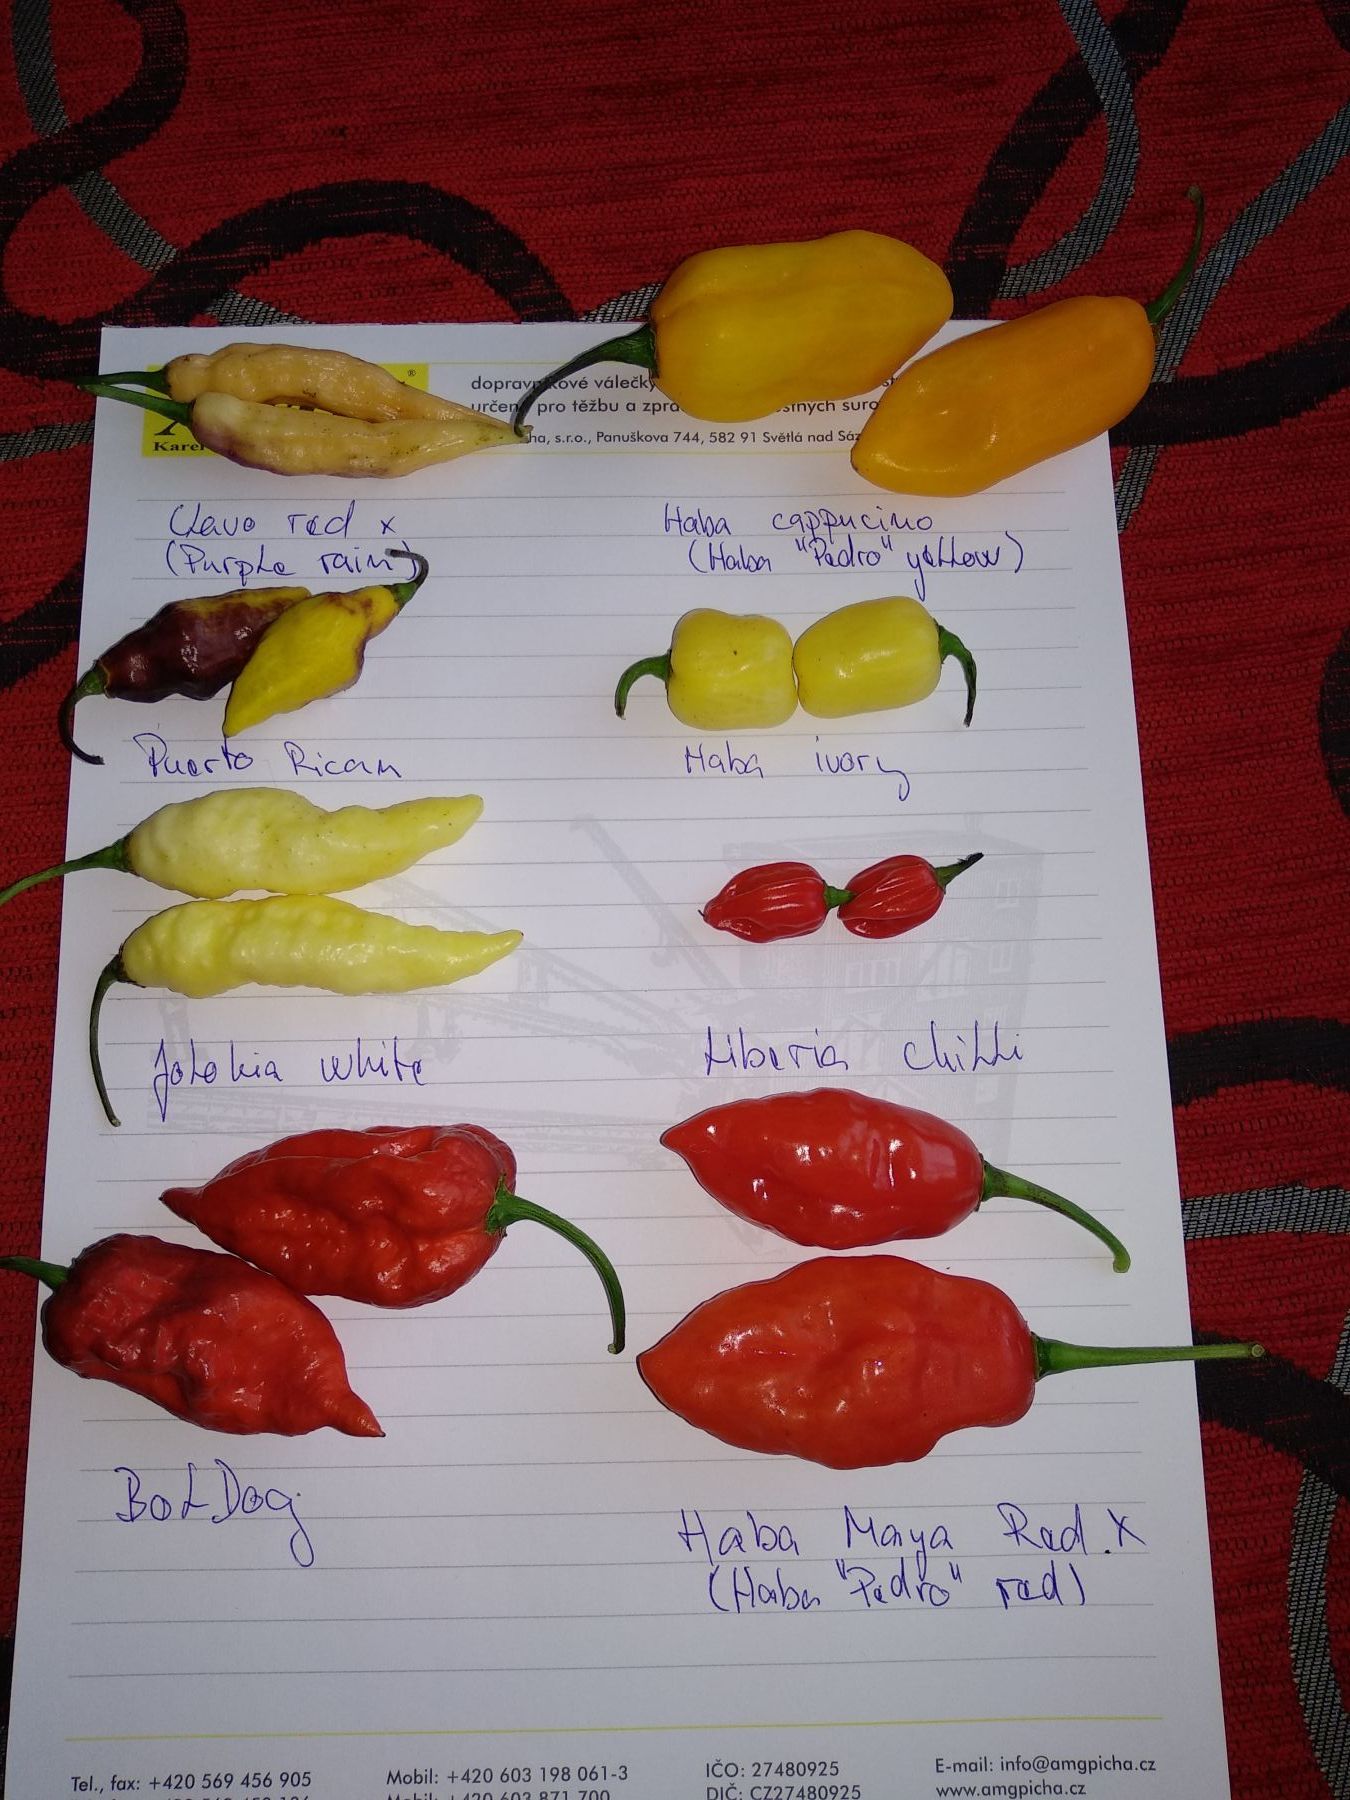 ®
dopravníkové válečky
určen pro těžbu a zpra
ha, s.r.o., Panuškova 744, 582 91 Světlá nad Sáz
Karel
Clavo red x
(Purple rain)
Haba cappucino
(Haba "Pedro" yellow)
Puerto Rican
Haba ivory
Jolokia white
Liberia chilli
BolDog
Haba Maya Red.X
(Haba "Pedro" red)
Tel., fax: +420 569 456 905
Mobil: +420 603 198 061-3
Mobil: +420 603 871 700
IČO: 27480925
DIČ: CZ27480925
E-mail: info@amgpicha.cz
www.amgpicha.cz